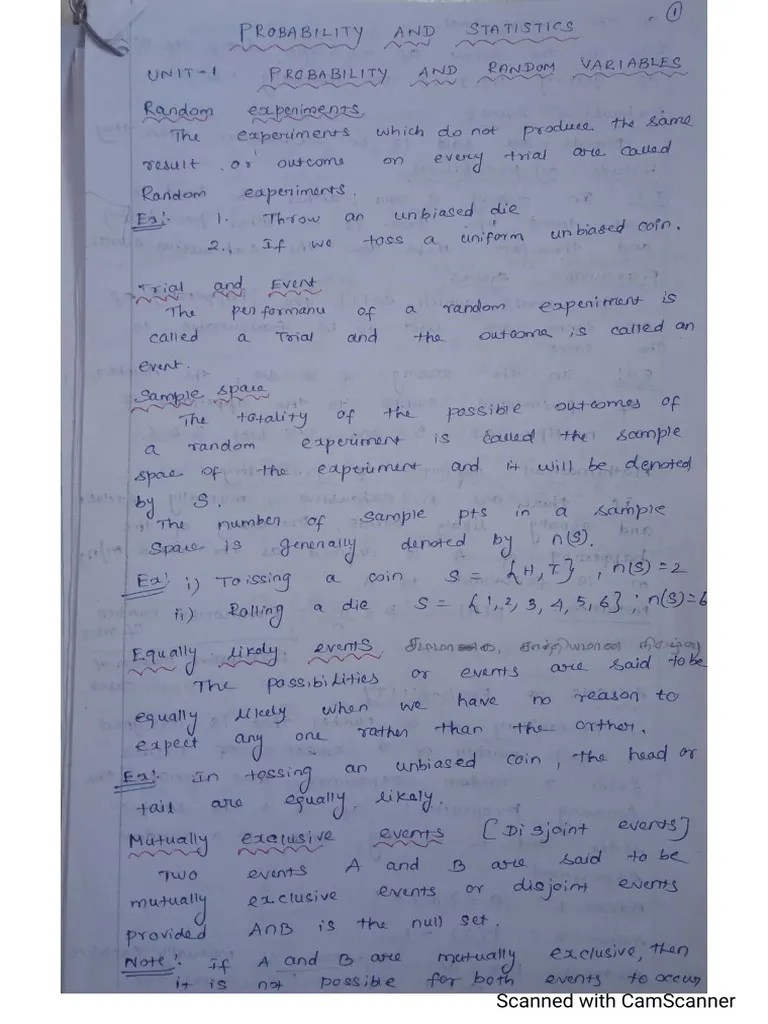 1
PROBABILITY AND STATISTICS
UNIT-1 PROBABILITY AND RANDOM VARIABLES
Random experiments
The experiments which do not produce the same
result or outcome on every trial are called
Random experiments.
Ex: 1. Throw an unbiased die
2., If we toss a uniform unbiased coin.
Trial and Event
The performanu of a random experiment is
called a Trial and the outcome is called an
event.
Sample space
The totality of the possible outcomes of
a random experiment is called the sample
space of the experiment and it will be denoted
by S.
The number of sample pts in a sample
space is generally denoted by n(S).
Ex: i) Toissing a coin S = {H, T} , n(S) = 2
ii) Rolling a die S = {1, 2, 3, 4, 5, 6} ; n(S) = 6
Equally likely events
The possibilities or events are said to be
equally likely when we have no reason to
expect any one rather than the orther.
Ex: In tossing an unbiased coin, the head or
tail are equally likely.
Mutually exclusive events [Disjoint events]
Two events A and B are said to be
mutually exclusive events or disjoint events
provided A∩B is the null set.
Note: If A and B are mutually exclusive, then
it is not possible for both events to occur
Scanned with CamScanner